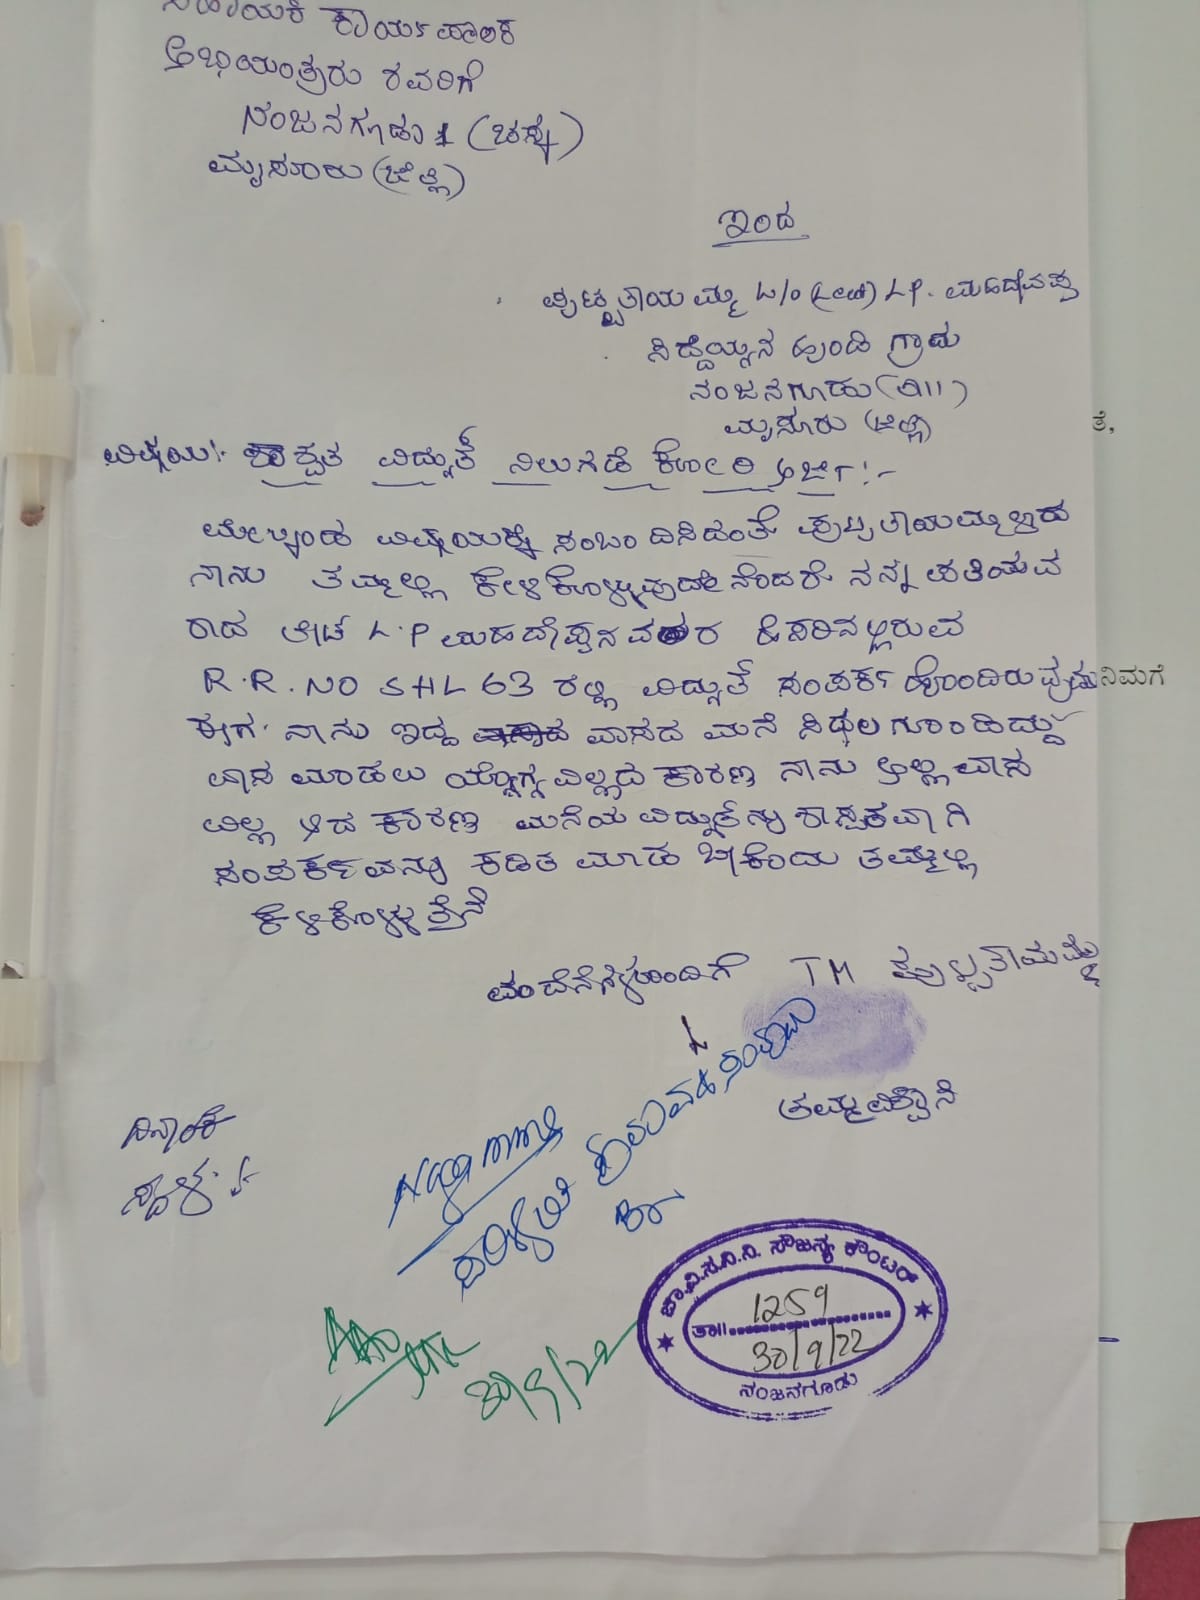 ಸಹಾಯಕ ಕಾರ್ಯಪಾಲಕ
ಅಭಿಯಂತ್ರರು ರವರಿಗೆ
ನಂಜನಗೂಡು 1
ಮೈಸೂರು (ಜಿಲ್ಲೆ)
ಇಂದ
ಪುಟ್ಟತಾಯಮ್ಮ W/o (Late) L.P. ಮಹದೇವಪ್ಪ
ಸಿದ್ದಯ್ಯನ ಹುಂಡಿ ಗ್ರಾಮ
ನಂಜನಗೂಡು (ತಾ||)
ಮೈಸೂರು (ಜಿಲ್ಲೆ)
ವಿಷಯ:- ಶಾಶ್ವತ ವಿದ್ಯುತ್ ನಿಲುಗಡೆ ಕೋರಿ ಅರ್ಜಿ:-
ಮೇಲ್ಕಂಡ ವಿಷಯಕ್ಕೆ ಸಂಬಂದಿಸಿದಂತೆ ಪುಟ್ಟತಾಯಮ್ಮಳಾದ
ನಾನು ತಮ್ಮಲ್ಲಿ ಕೇಳಿಕೊಳ್ಳುವುದೇನೆಂದರೆ ನನ್ನ ಪತಿಯವ
ರಾದ ಲೇಟ್ L.P ಮಹದೇವಪ್ಪನವರ ಹೆಸರಿನಲ್ಲಿರುವ
R.R.NO SHL 63 ರಲ್ಲಿ ವಿದ್ಯುತ್ ಸಂಪರ್ಕ ಹೊಂದಿರುವುದು
ಈಗ ನಾನು ಇದ್ದ ವಾಸದ ಮನೆ ಸಿಥಿಲಗೊಂಡಿದ್ದು
ವಾಸ ಮಾಡಲು ಯೋಗ್ಯವಿಲ್ಲದ ಕಾರಣ ನಾನು ಅಲ್ಲಿ ವಾಸ
ವಿಲ್ಲ ಆದ ಕಾರಣ ಮನೆಯ ವಿದ್ಯುತನ್ನು ಶಾಸ್ವತವಾಗಿ
ಸಂಪರ್ಕವನ್ನು ಕಡಿತ ಮಾಡಬೇಕೆಂದು ತಮ್ಮಲ್ಲಿ
ಕೇಳಿಕೊಳ್ಳುತ್ತೇನೆ
ವಂದನೆಗಳೊಂದಿಗೆ TM ಪುಟ್ಟತಾಯಮ್ಮ
ತಮ್ಮ ವಿಶ್ವಾಸಿ
ದಿನಾಂಕ
ಸ್ಥಳ:-
ಚಾ.ವಿ.ಸ.ನಿ.ನಿ. ಸೌಜನ್ಯ ಕೌಂಟರ್
1259
ತಾ|| 30/9/22
ನಂಜನಗೂಡು
30/9/22
ತೆ,
ನಿಮಗೆ